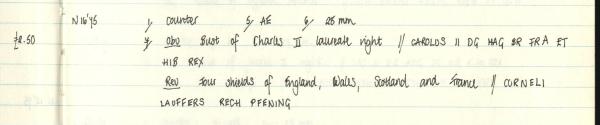 N16'45 1, counter 5, AE 6, 28 mm
£2.50 7, Obv Bust of Charles II laureate right // CAROLDS II DG HAG BR FRA ET
HIB REX
Rev Four shields of England, Wales, Scotland and France // CORNELI
LAUFFERS RECH PFENING